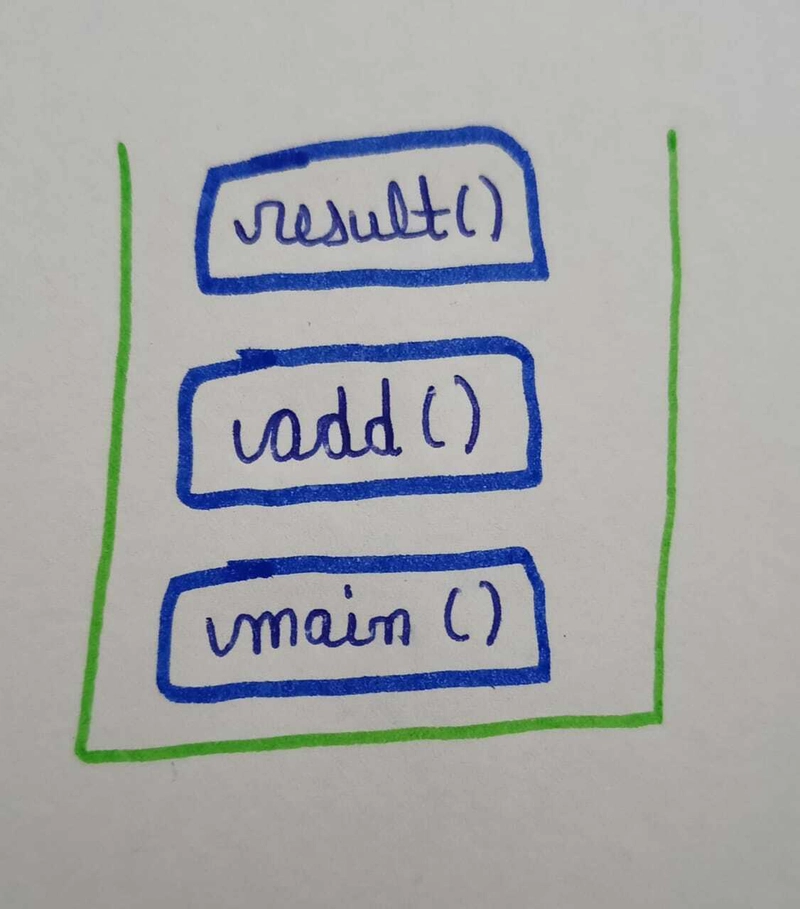 result()
add()
main()